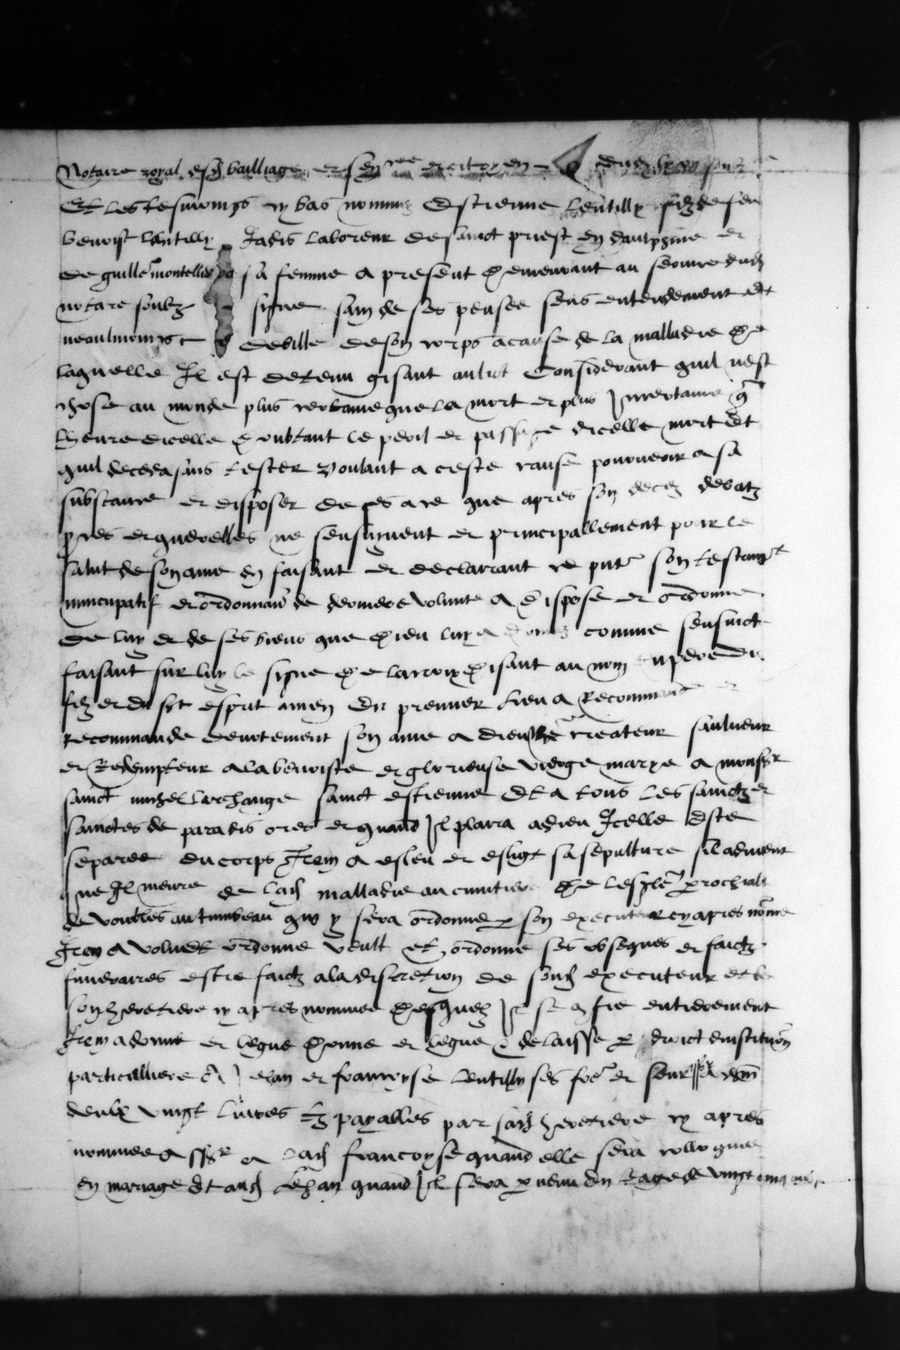 Notaire royal esd bailliage et sen
Et les tesmoings cy bas nommez Estienne Lentilly filz de feu
benoist Lantilly Jadis laboreur de sainct priest en daulphine et
de guillem montellier sa femme a present demeurant au dud
notaire soubz signe sain de ses pensee sens entendement et
neaulmoings debille de son corps a cause de la malladie de
laquelle Il est detenu gisant au lict Considerant quil nest
chose au monde plus certaine que la mort et plus Incertaine q
lheure dicelle doubtant le peril et passaige dicelle mort et
quil decedast sans tester voulant a ceste cause pourveoir a sa
substance et disposer de ses a ce que apres son deces debatz
et querelles ne sensuyvent et principallement pour le
salut de son ame en faisant et declarrant ce pnt son testamt
nuncupatif et ordonnance de derniere volunte a dispose et ordonne
de luy et de ses biens que dieu luy a donnez comme sensuict
faisant sur luy le signe de la croix disant au nom du pere du
filz et du sainct esprit amen En premier lieu a Recommande et
recommande devotement son ame a dieu createur saulveur
et Redempteur a la benoiste et glorieuse vierge marye a monsr
sainct michel larchange sainct estienne Et a tous les sainctz et
sainctes de paradis ores et quand Il plaira a dieu Icelle estre
separee du corps Item a esleu et eslist sa sepulture sil advient
que Il meure de lad malladie au cimitiere de lesglise prochiale
de vourles au tumbeau qui y sera ordonne p son executeur cy apres nomme
Item a voulut ordonne veult et ordonne ses obseques et faictz
funeraires estre faictz a la discretion de sond executeur et de
son heretiere cy apres nommee desquelz Il se confie entierement
Item a donne et legue donne et legue et delaisse p droict dinstitution
particulliere a Jehan et francoyse Lentilly ses frere et seur
deulx vingt livres tz payalles par sad heretiere cy apres
nommee a lad francoyse quand elle sera colloquee
en mariage Et aud Jehan quand Il sera pvenu en leage de vingt cinq ans